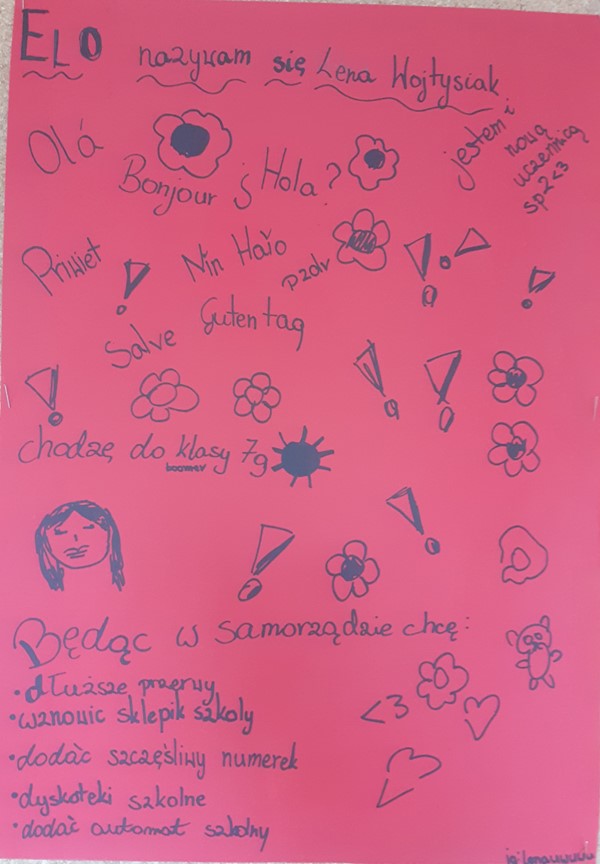 ELO nazywam się Lena Wojtysiak
jestem i
nową
uczennicą
sp2<3
Olá
Bonjour
¿ Hola?
Priwiet
Nin Hao
pzdr
Salve
Guten tag
chodzę do klasy 7g
boomer
Będąc w samorządzie chcę:
•dłuższe przerwy
•wznowic sklepik szkoly
•dodać szczęśliwy numerek
•dyskoteki szkolne
•dodać automat szkolny
<3